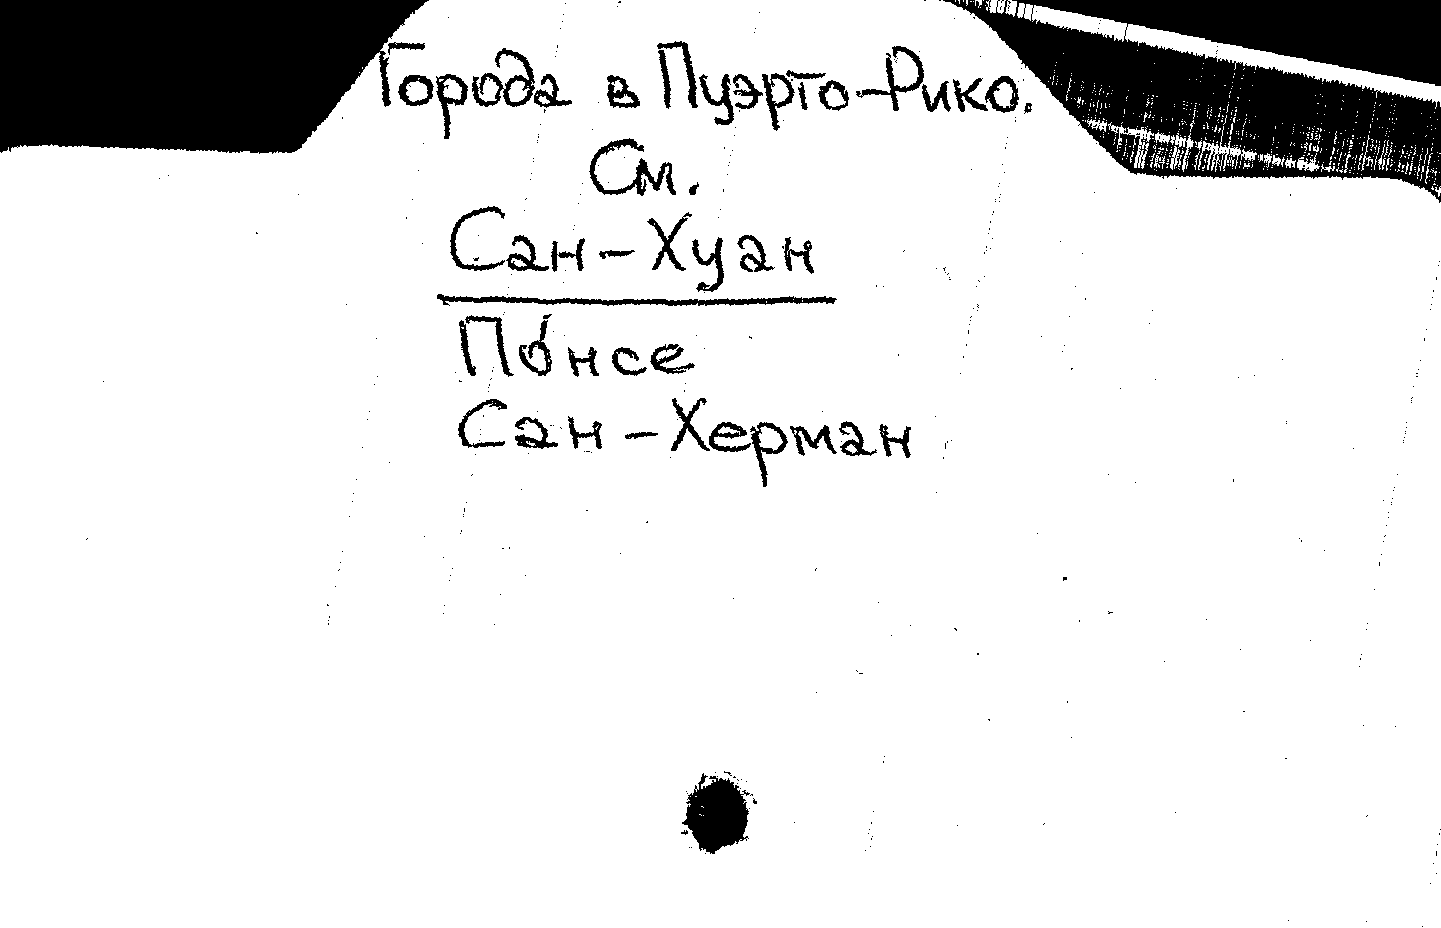 Города в Пуэрто-Рико.
См.
Сан-Хуан
По́нсе
Сан-Херман